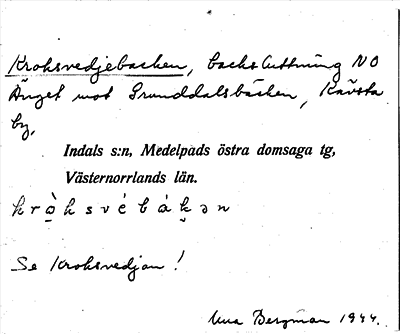 Krohsvedjebacken, backsluttning NO
Änget mot Grunddalsbäcken, Kävsta
by,
Indals s:n, Medelpads östra domsaga tg,
Västernorrlands län.
Se Krohsvedjan!
Bergman 1944.